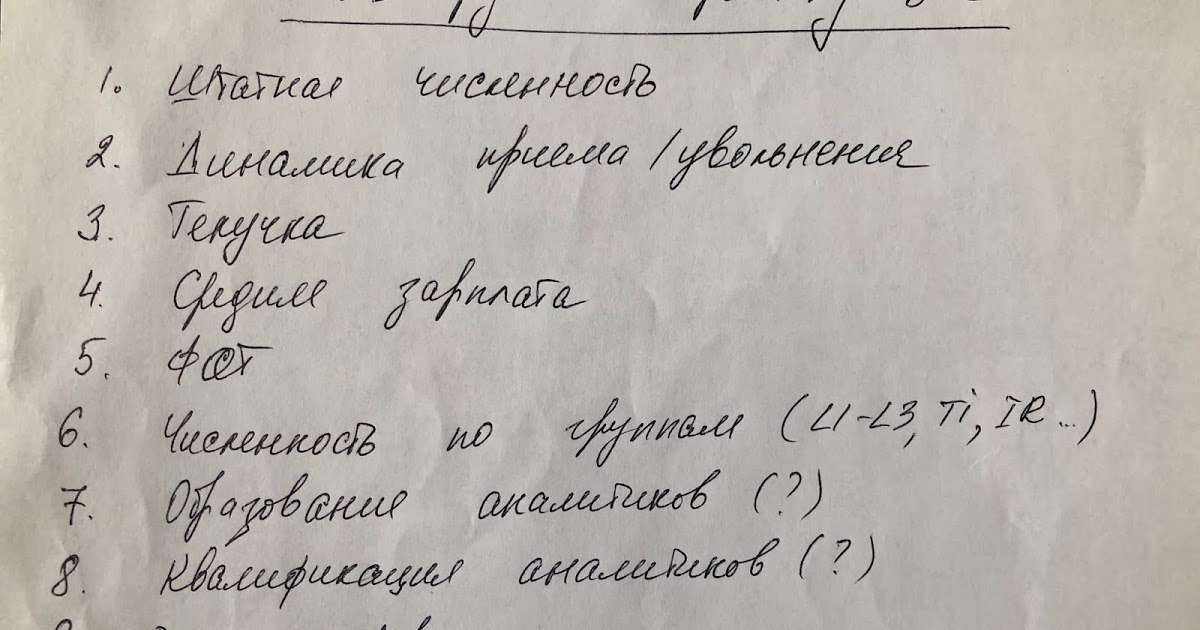 1. Штатная численность
2. Динамика приема / увольнения
3. Текучка
4. Средняя зарплата
5. ФОТ
6. Численность по группам (L1-L3, Ti, IR ...)
7. Образование аналитиков (?)
8. Квалификация аналитиков (?)